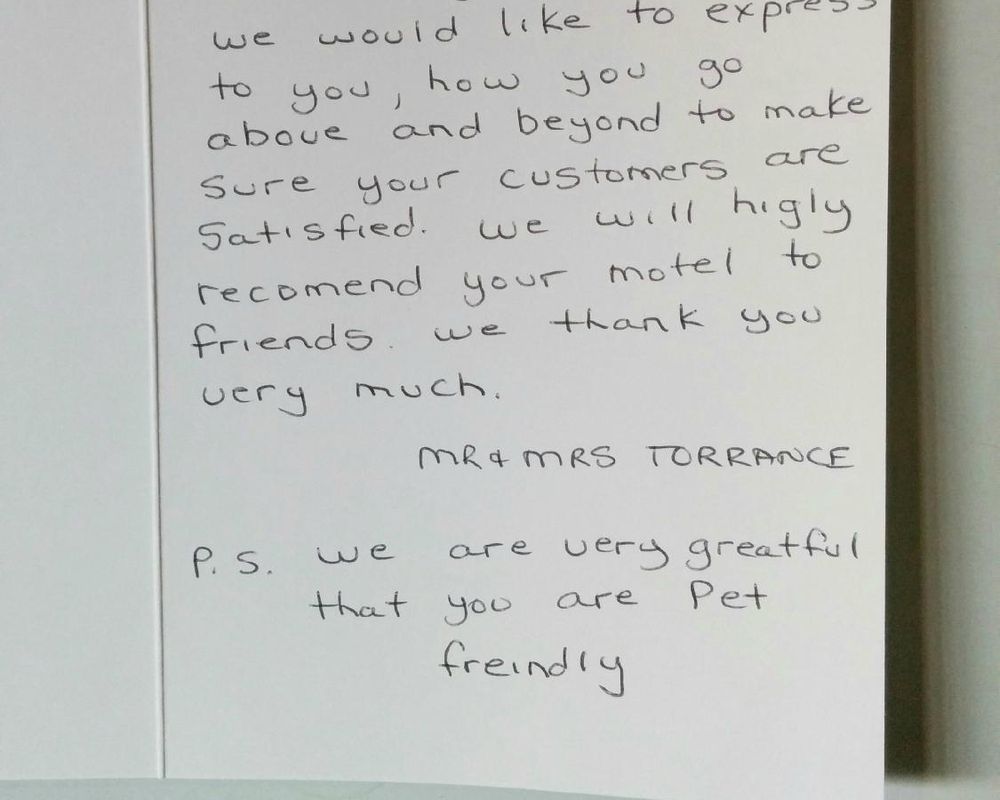 we would like to express
to you, how you go
above and beyond to make
sure your customers are
satisfied. we will higly
recomend your motel to
friends. we thank you
very much.
MR & MRS TORRANCE
P.S. we are very greatful
that you are Pet
freindly